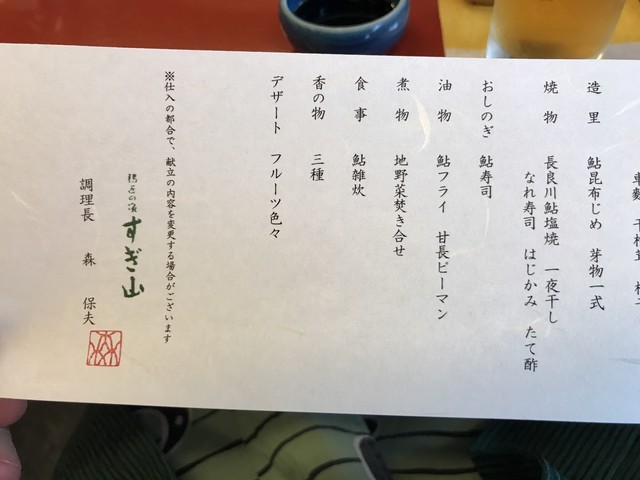 造里 鮎昆布じめ 芽物一式
焼物 長良川鮎塩焼 一夜干し
なれ寿司 はじかみ たて酢
おしのぎ 鮎寿司
油物 鮎フライ 甘長ピーマン
煮物 地野菜焚き合せ
食事 鮎雑炊
香の物 三種
デザート フルーツ色々
※仕入の都合で、献立の内容を変更する場合がございます
すぎ山
調理長 森 保夫